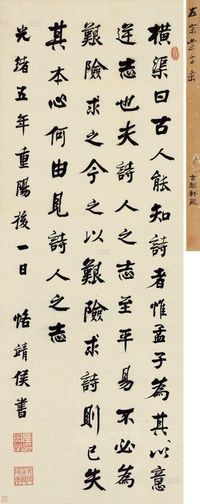 橫渠曰古人能知詩者惟孟子為其以意
逆志也夫詩人之志至平易不必為
艱險求之今之以艱險求詩則已失
其本心何由見詩人之志
光緒五年重陽後一日 恪靖侯書